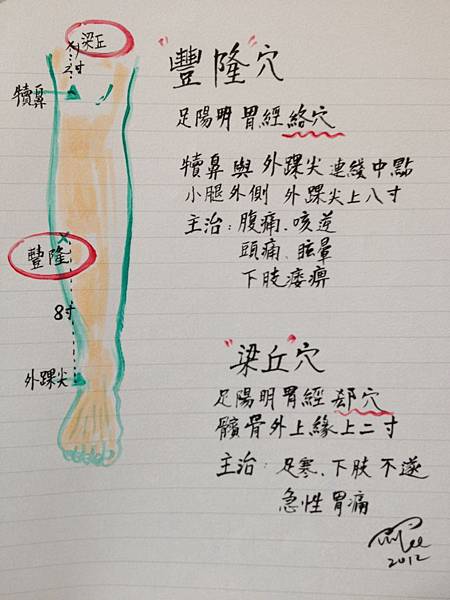 梁丘
2寸
犢鼻
豐隆
8寸
外踝尖
"豐隆"穴
足陽明胃經絡穴
犢鼻與外踝尖連綫中點
小腿外側 外踝尖上八寸
主治:腹痛、咳逆
頭痛、眩暈
下肢痿痹
"梁丘"穴
足陽明胃經郄穴
髕骨外上緣上二寸
主治:足寒、下肢不遂
急性胃痛
2012